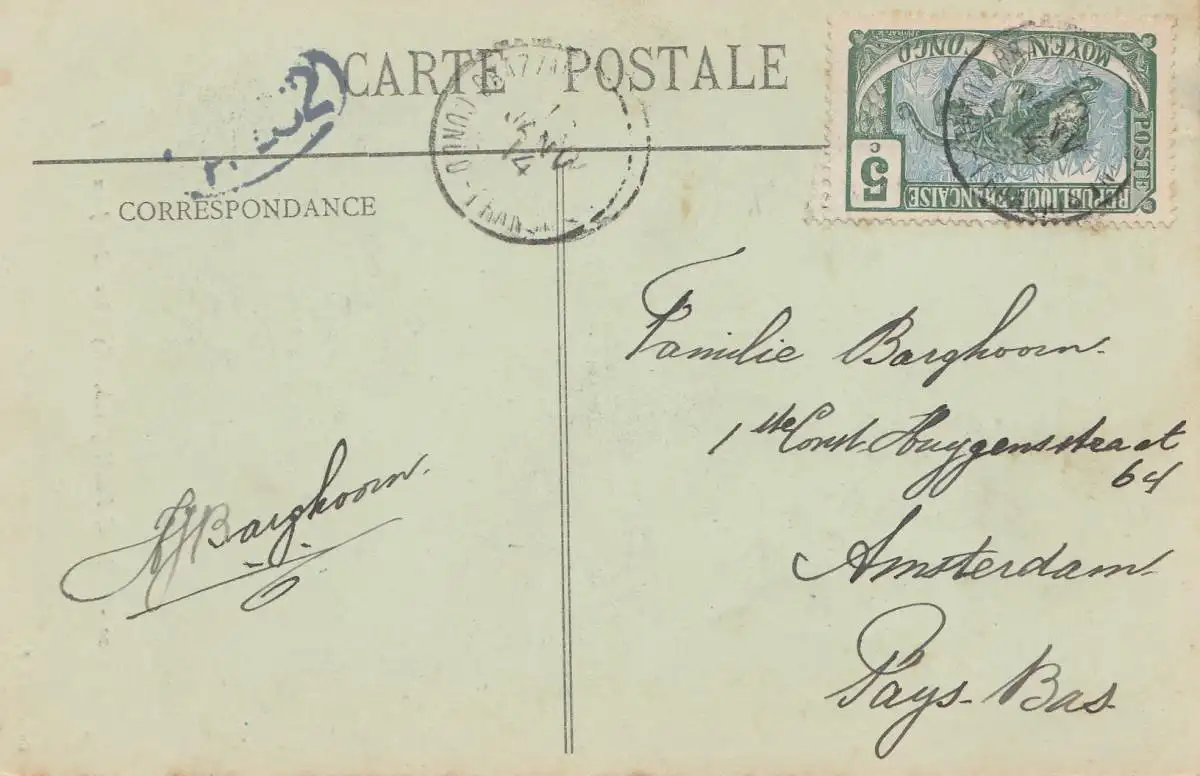 CARTE POSTALE
CORRESPONDANCE
MOYEN CONGO
POSTE
5 c
RÉPUBLIQUE FRANÇAISE
Familie Barghoorn.
1ste Const. Huygensstraat
64
Amsterdam.
Pays-Bas
Barghoorn.